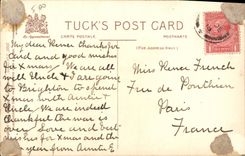 5.00
TUCK'S POST CARD
CARTE POSTALE
POSTKARTE
(FOR ADDRESS ONLY)
My dear Renee thanks for
Card and good wishes
for Xmas. We are all
well Uncle & I are going
to Brighton to spend
Xmas with Auntie &
Uncle. We are indeed
thankful the war is
over. Love and best
wishes for Xmas and the
year from Auntie E.
Miss Renee French
Rue de Ponthieu
Paris
France